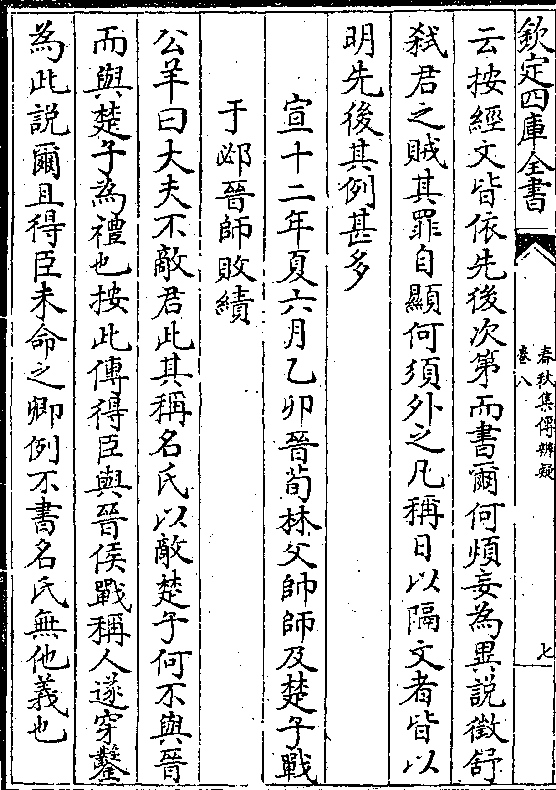 欽定四庫全書
春秋集傳辨疑
卷八
七
云按經文皆依先後次第而書爾何煩妄為異說徵舒
弑君之賊其罪自顯何須外之凡稱日以隔文者皆以
明先後其例甚多
宣十二年夏六月乙卯晉荀林父帥師及楚子戰
于邲晉師敗績
公羊曰大夫不敵君此其稱名氏以敵楚子何不與晉
而與楚子為禮也按此傳得臣與晉侯戰稱人遂穿鑿
為此説爾且得臣未命之卿例不書名氏無他義也